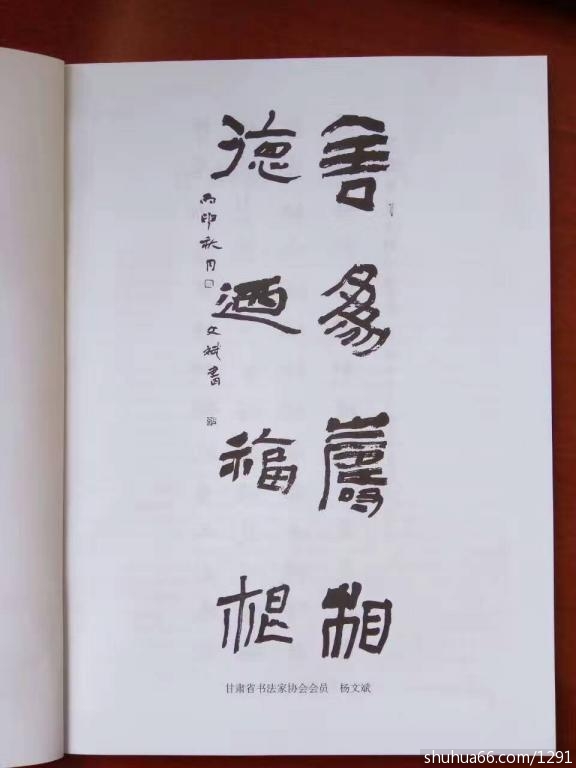 相
德廼福根
丙申秋月
文斌書
甘肃省书法家协会会员 杨文斌
shuhua66.com/1291